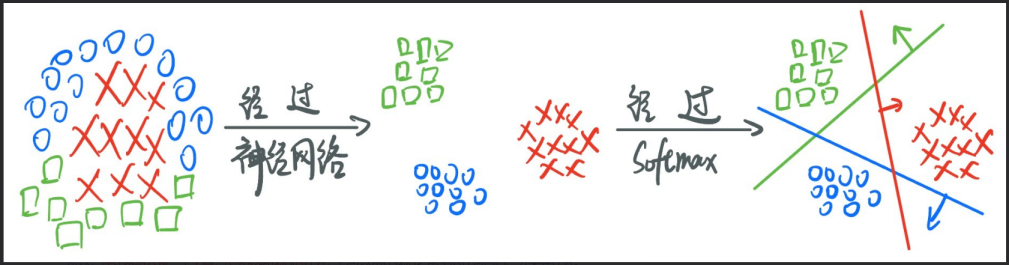 经过
神经网络
经过
Sofemax